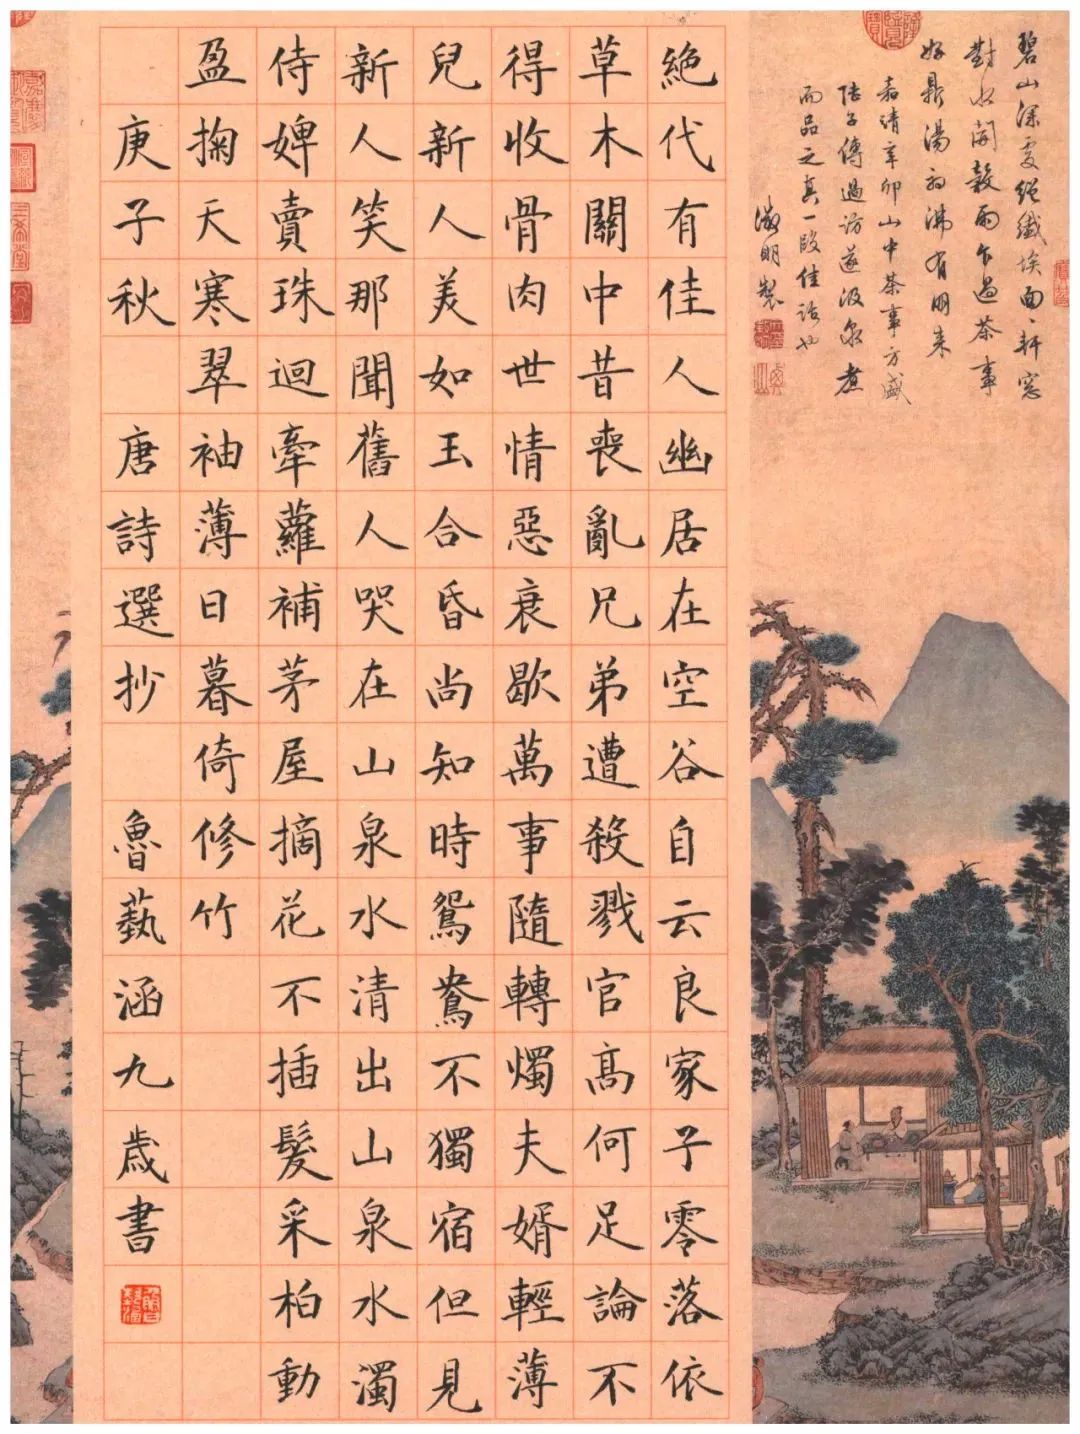 碧山深處絕纖埃面〻軒窗
對水開穀雨乍過茶事
好鼎湯初沸有朋來
嘉靖辛卯山中茶事方盛
陸子傳過訪遂汲泉煮
而品之真一段佳話也
徵明製
絕代有佳人幽居在空谷自云良家子零落依
草木關中昔喪亂兄弟遭殺戮官高何足論不
得收骨肉世情惡衰歇萬事隨轉燭夫婿輕薄
兒新人美如玉合昏尚知時鴛鴦不獨宿但見
新人笑那聞舊人哭在山泉水清出山泉水濁
侍婢賣珠迴牽蘿補茅屋摘花不插髮采柏動
盈掬天寒翠袖薄日暮倚修竹
庚子秋 唐詩選抄 魯藝涵九歲書